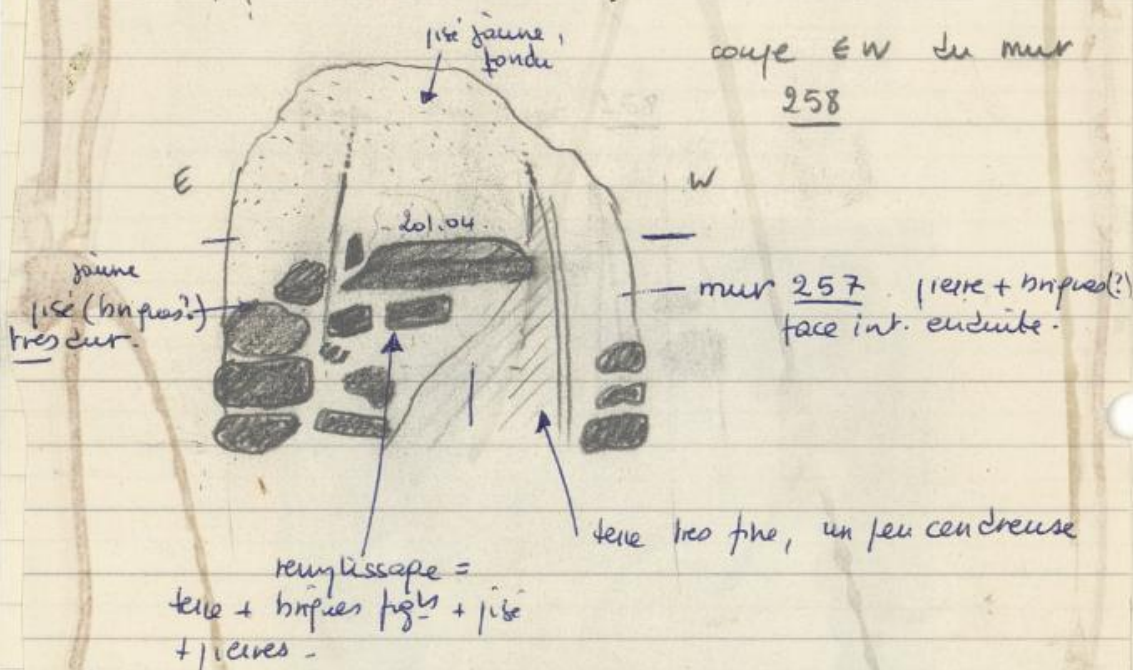 pisé jaune,
fondu
coupe E W du mur
258
E
W
201.04
jaune
pisé (briques?)
très dur.
mur 257 pierre + briques(?)
face int. enduite.
terre très fine, un peu cendreuse
remplissage =
terre + briques fgts + pisé
+ pierres -